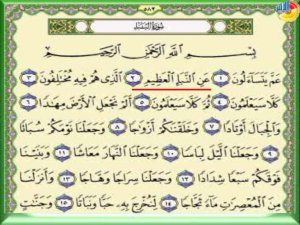 ٥٨٢
سُورَةُ النَّبَإِ
بِسْمِ اللَّهِ الرَّحْمَٰنِ الرَّحِيمِ
عَمَّ يَتَسَاءَلُونَ ١ عَنِ النَّبَإِ الْعَظِيمِ ٢ الَّذِي هُمْ فِيهِ مُخْتَلِفُونَ ٣
كَلَّا سَيَعْلَمُونَ ٤ ثُمَّ كَلَّا سَيَعْلَمُونَ ٥ أَلَمْ نَجْعَلِ الْأَرْضَ مِهَادًا ٦
وَالْجِبَالَ أَوْتَادًا ٧ وَخَلَقْنَاكُمْ أَزْوَاجًا ٨ وَجَعَلْنَا نَوْمَكُمْ سُبَاتًا
٩ وَجَعَلْنَا اللَّيْلَ لِبَاسًا ١٠ وَجَعَلْنَا النَّهَارَ مَعَاشًا ١١ وَبَنَيْنَا
فَوْقَكُمْ سَبْعًا شِدَادًا ١٢ وَجَعَلْنَا سِرَاجًا وَهَّاجًا ١٣ وَأَنْزَلْنَا
مِنَ الْمُعْصِرَاتِ مَاءً ثَجَّاجًا ١٤ لِنُخْرِجَ بِهِ حَبًّا وَنَبَاتًا ١٥ وَجَنَّاتٍ